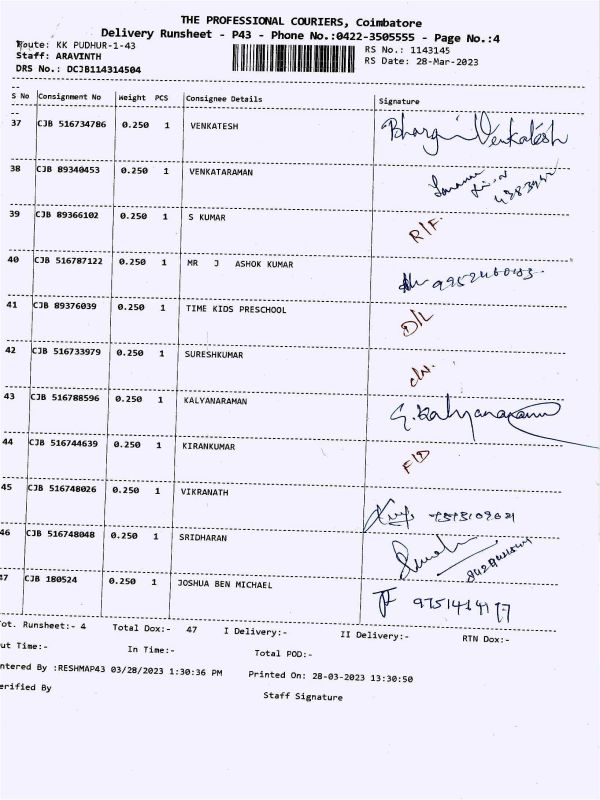 THE PROFESSIONAL COURIERS, Coimbatore
Delivery Runsheet - P43 - Phone No.:0422-3505555 - Page No.:4
Route: KK PUDHUR-1-43 RS No.: 1143145
Staff: ARAVINTH RS Date: 28-Mar-2023
DRS No.: DCJB114314504
--
S No Consignment No Weight PCS Consignee Details Signature
--
37 CJB 516734786 0.250 1 VENKATESH Venkatesh
38 CJB 89340453 0.250 1 VENKATARAMAN
39 CJB 89366102 0.250 1 S KUMAR R/F.
40 CJB 516787122 0.250 1 MR J ASHOK KUMAR
41 CJB 89376039 0.250 1 TIME KIDS PRESCHOOL D/L
42 CJB 516733979 0.250 1 SURESHKUMAR
43 CJB 516788596 0.250 1 KALYANARAMAN G. Kalyanaraman
44 CJB 516744639 0.250 1 KIRANKUMAR F/D
45 CJB 516748026 0.250 1 VIKRANATH
46 CJB 516748048 0.250 1 SRIDHARAN
47 CJB 180524 0.250 1 JOSHUA BEN MICHAEL
ot. Runsheet:- 4 Total Dox:- 47 I Delivery:- II Delivery:- RTN Dox:-
ut Time:- In Time:- Total POD:-
ntered By :RESHMAP43 03/28/2023 1:30:36 PM Printed On: 28-03-2023 13:30:50
erified By Staff Signature